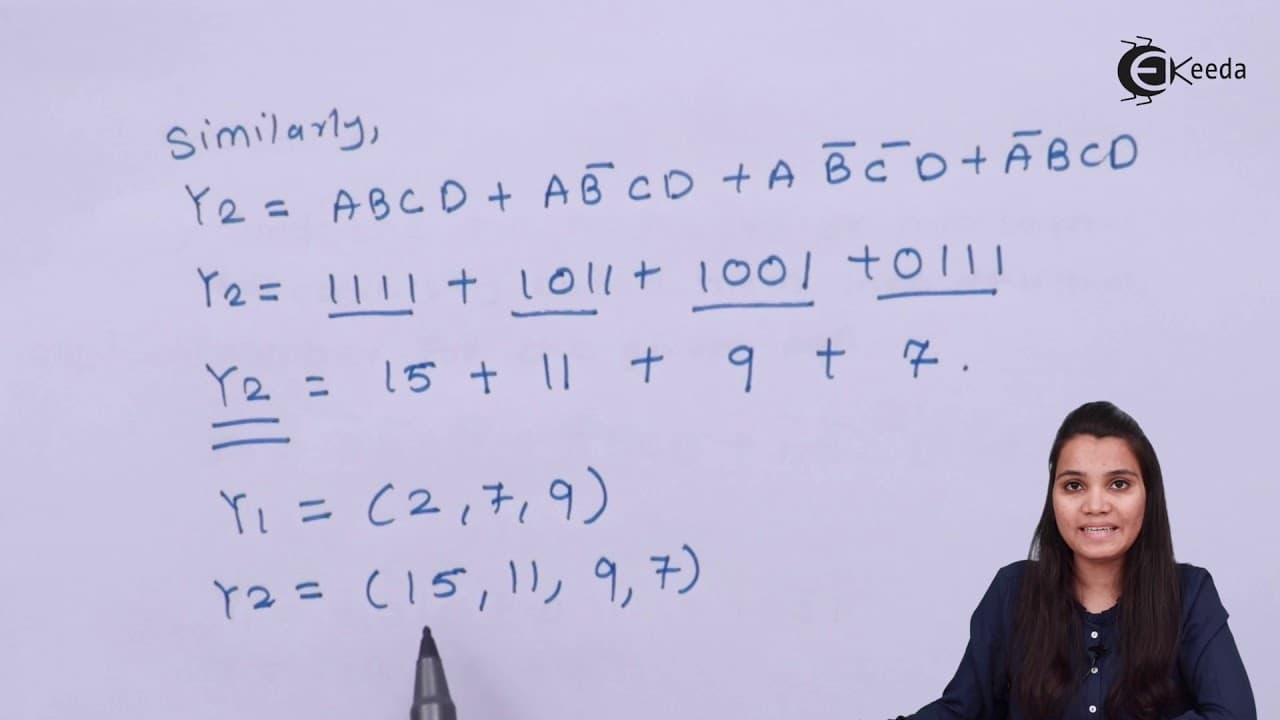 EKeeda
Similarly,
Y2 = ABCD + AB̅CD + A B̅C̅D + A̅BCD
Y2 = 1111 + 1011 + 1001 + 0111
Y2 = 15 + 11 + 9 + 7.
Y1 = (2,7,9)
Y2 = (15, 11, 9, 7)